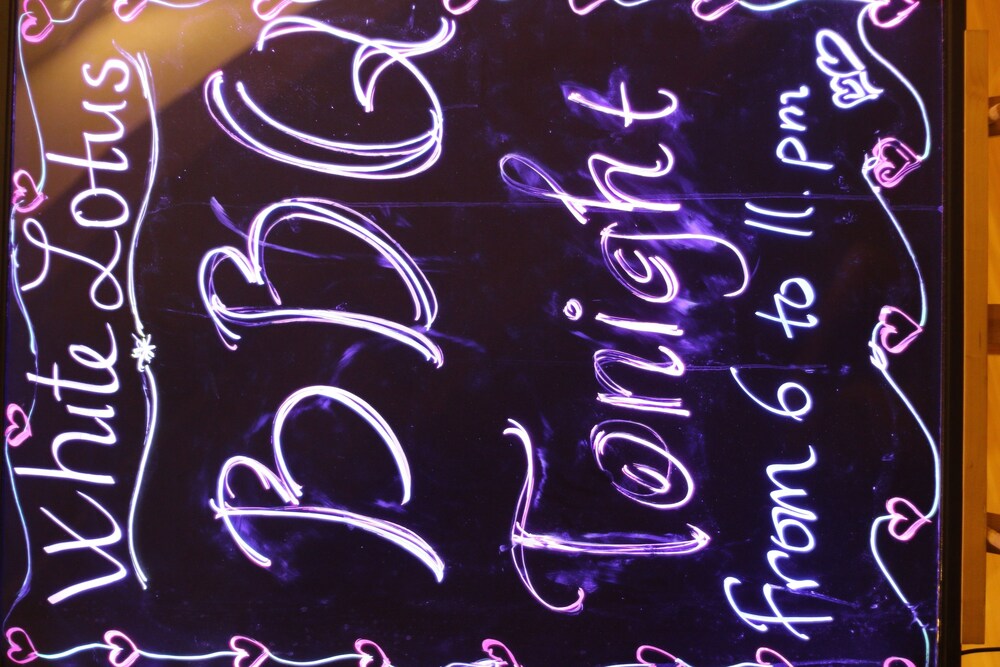 White Lotus
BBQ
Tonight
from 6 to 11. pm